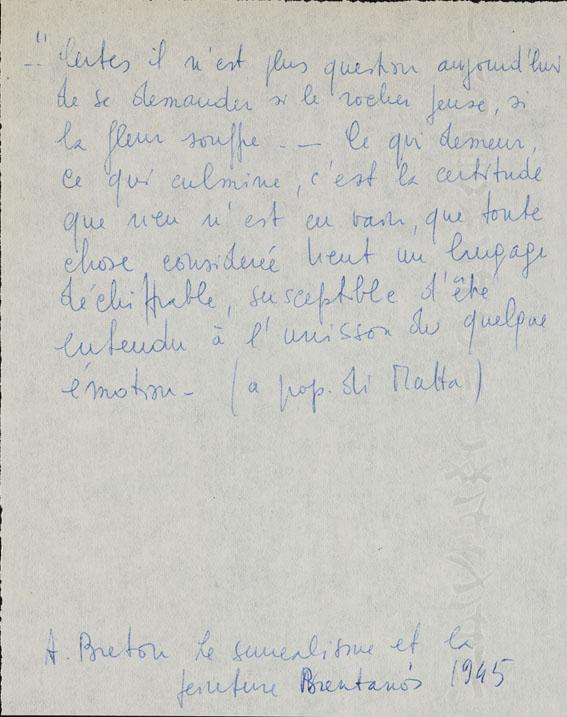 — " Certes il n'est plus question aujourd'hui
de se demander si le rocher pense, si
la fleur souffre. — Ce qui demeur,
ce qui culmine, c'est la certitude
que rien n'est en vain, que toute
chose considereé tient un langage
déchiffrable, susceptible d'être
entendu à l'unisson de quelque
émotion — (a prop. di Matta)
A. Breton Le surrealisme et la
peinture Brentano's 1945